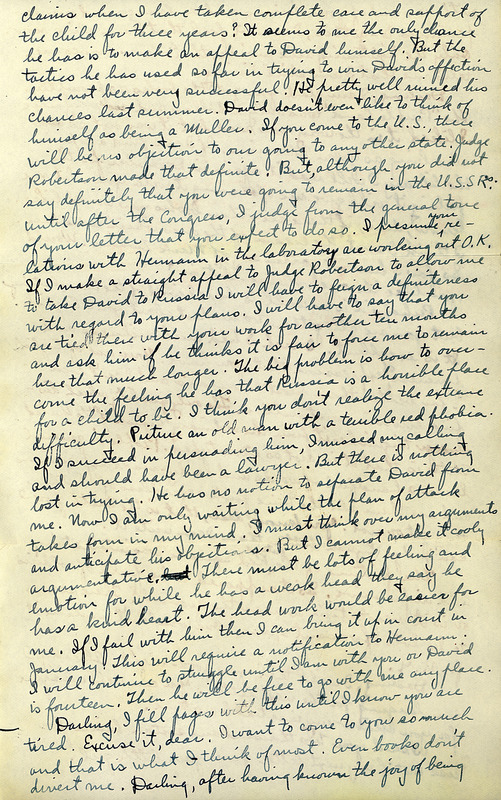 claims when I have taken complete care and support of
the child for three years? It seems to me the only chance
he has is to make an appeal to David himself. But the
tactics he has used so far in trying to win David's affection
have not been very successful. He pretty well ruined his
chances last summer. David doesn't even like to think of
himself as being a Muller. If you come to the U.S., there
will be no objection to our going to any other state. Judge
Robertson made that definite. But although you did not
say definitely that you were going to remain in the U.S.S.R.
until after the Congress, I judge from the general tone
of your letter that you expect to do so. I presume your re-
lations with Hermann in the laboratory are working out O.K.
If I make a straight appeal to Judge Robertson to allow me
to take David to Russia I will have to feign a definiteness
with regard to your plans. I will have to say that you
are tied there with your work for another ten months
and ask him if he thinks it is fair to force me to remain
here that much longer. The big problem is how to over-
come the feeling he has that Russia is a horrible place
for a child to be. I think you don't realize the extreme
difficulty. Picture an old man with a terrible red phobia.
If I succeed in persuading him, I missed my calling
and should have been a lawyer. But there is nothing
lost in trying. He has no notion to separate David from
me. Now I am only waiting while the plan of attack
takes form in my mind. I must think over my arguments
and anticipate his objections. But I cannot make it cooly
argumentative, There must be lots of feeling and
emotion for while he has a weak head they say he
has a kind heart. The head work would be easier for
me. If I fail with him then I can bring it up in court in
January. This will require a notification to Hermann.
I will continue to struggle until I am with you or David
is fourteen. Then he will be free to go with me any place.
Darling, I fill pages with this until I know you are
tired. Excuse it, dear. I want to come to you so much
and that is what I think of most. Even books don't
divert me. Darling, after having known the joy of being